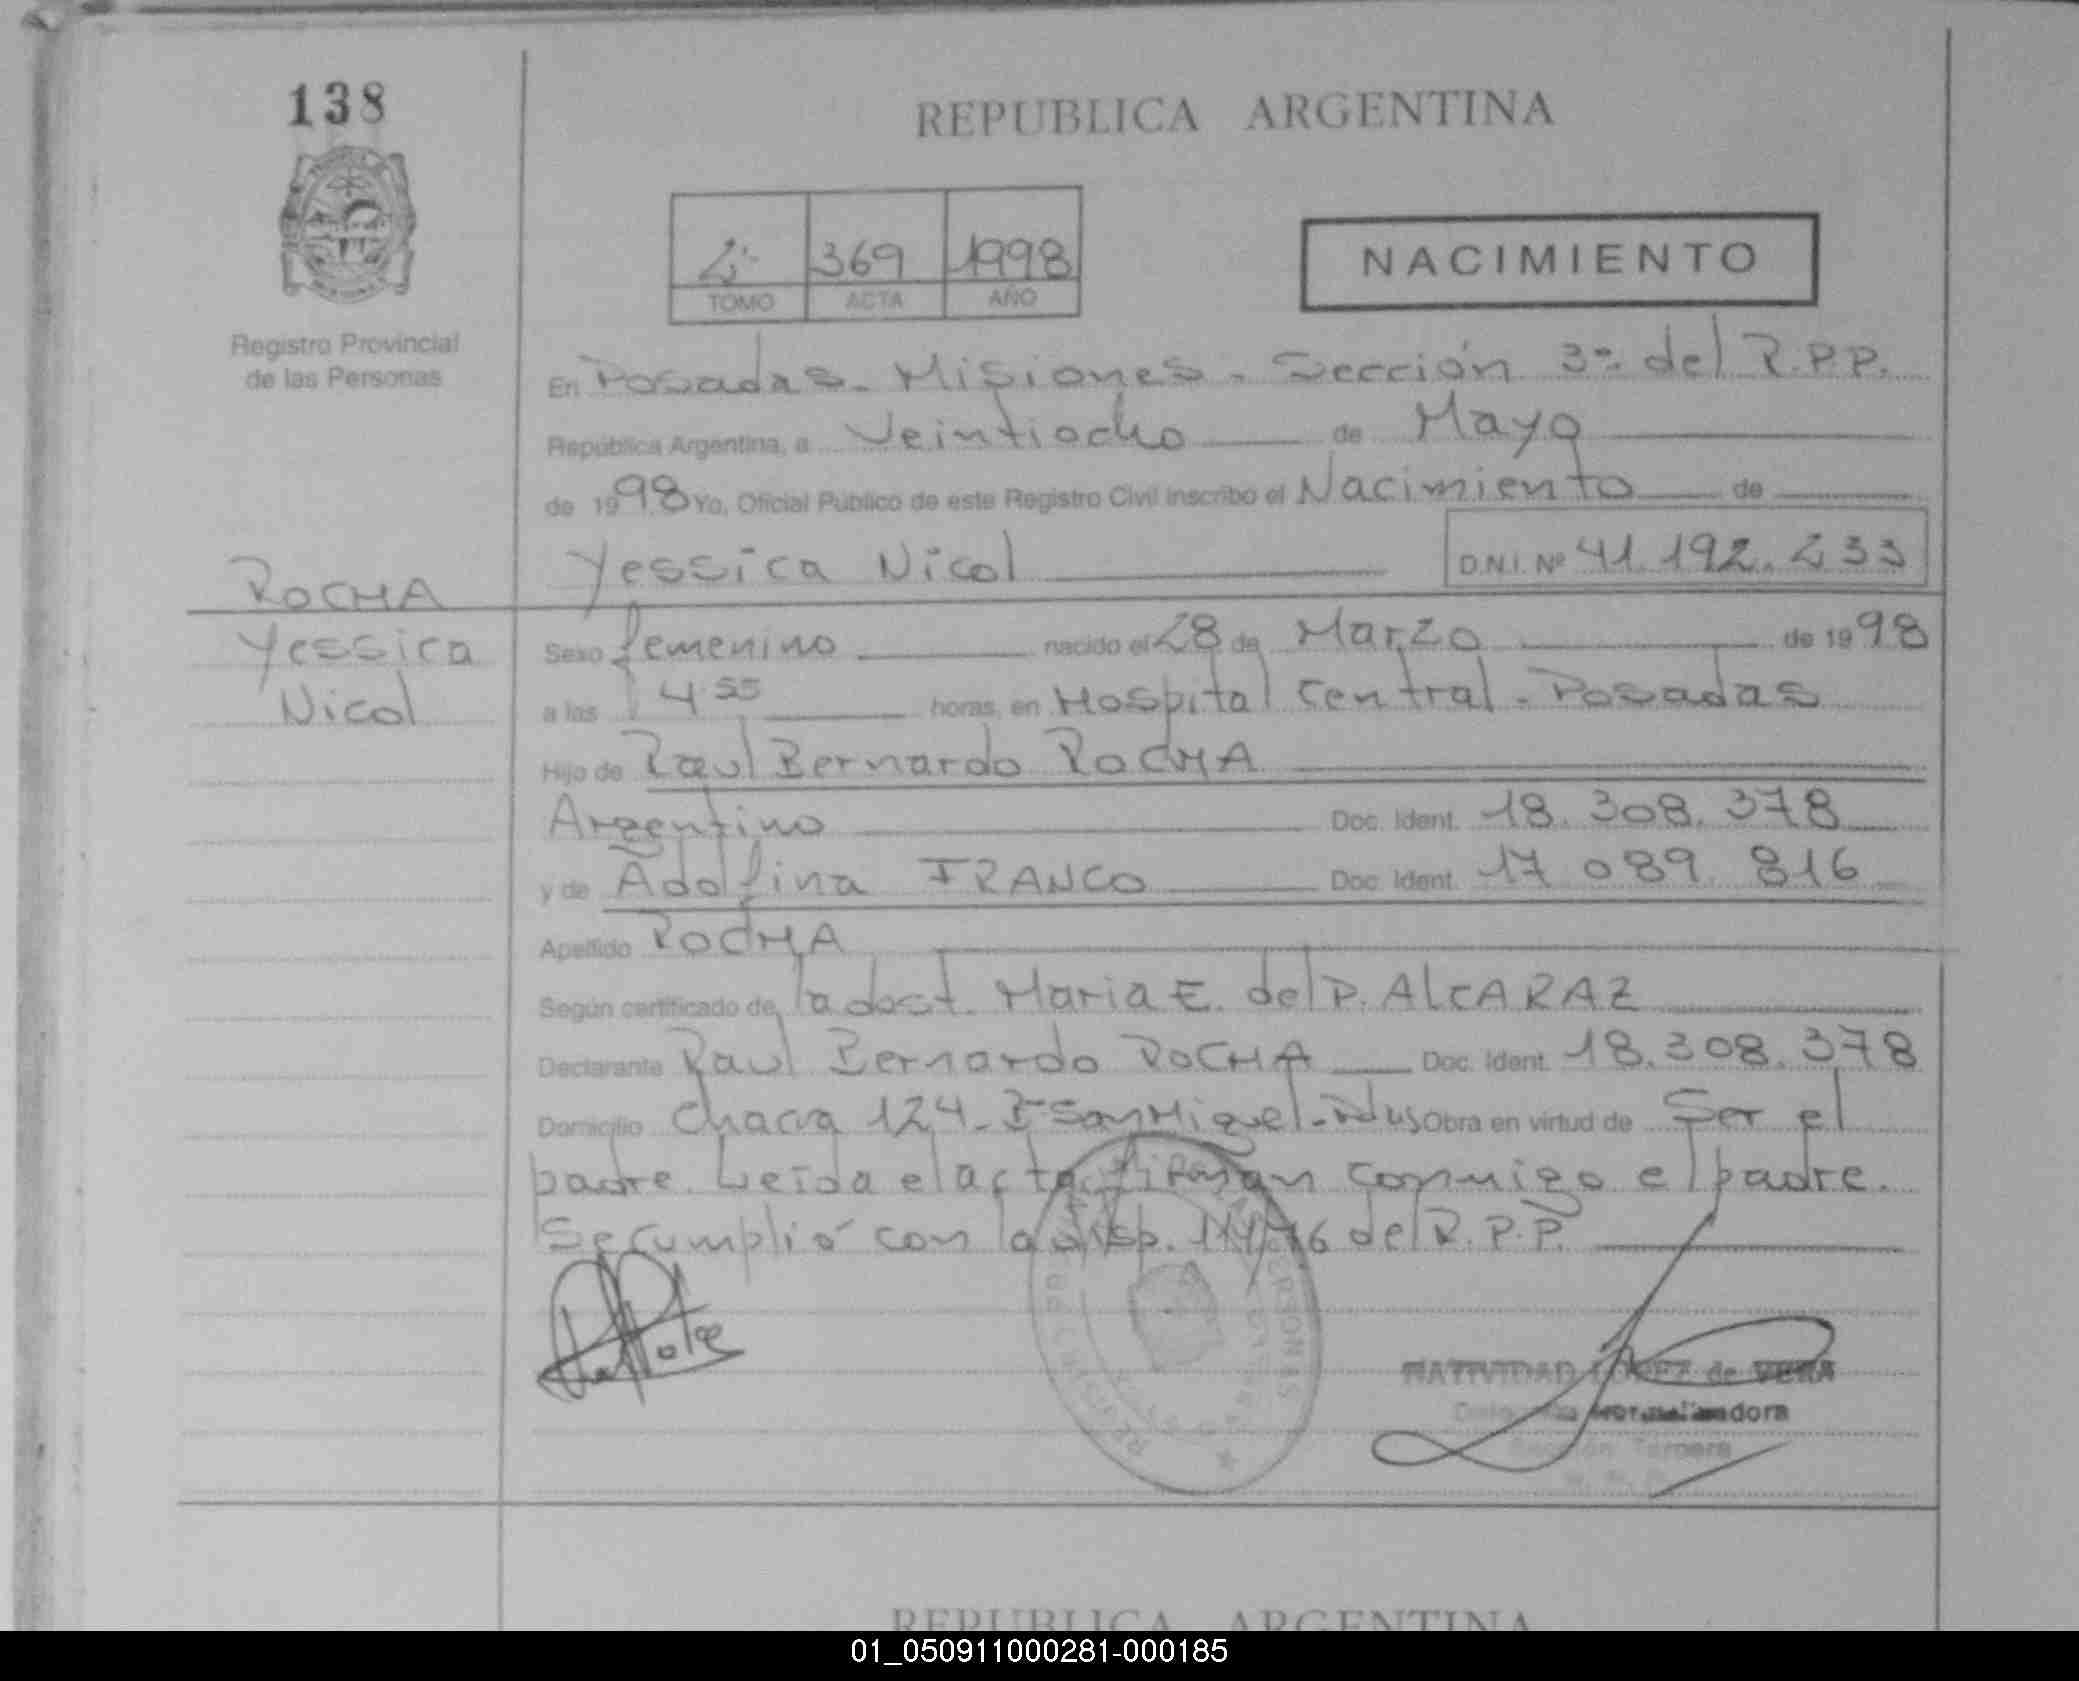 138
REPUBLICA ARGENTINA
2º 369 1998
TOMO ACTA AÑO
NACIMIENTO
Registro Provincial
de las Personas
En Posadas - Misiones - Sección 3º del R.P.P.
República Argentina, a Veintiocho de Mayo
de 1998 Yo, Oficial Público de este Registro Civil inscribo el Nacimiento de
Yessica Nicol D.N.I. Nº 41.192.233
ROCHA
Yessica
Nicol
Sexo femenino nacido el 28 de Marzo de 1998
a las 4 55 horas, en Hospital Central - Posadas
Hijo de Raul Bernardo ROCHA
Argentino Doc. Ident. 18.308.378
y de Adolfina FRANCO Doc. Ident. 17 089. 816
Apellido ROCHA
Según certificado de la obst. Maria E. del P. ALCARAZ
Declarante Raul Bernardo ROCHA Doc. Ident. 18.308.378
Domicilio Chacra 124 - Bº San Miguel - Pdas Obra en virtud de Ser el
padre. Leída el acta firman conmigo el padre.
Se cumplió con la Disp. 114/76 del R.P.P.
REGISTRO PERSONAS
NATIVIDAD LOPEZ de VERA
Delegada Normalizadora
Sección Tercera
REPUBLICA ARGENTINA
01_050911000281-000185